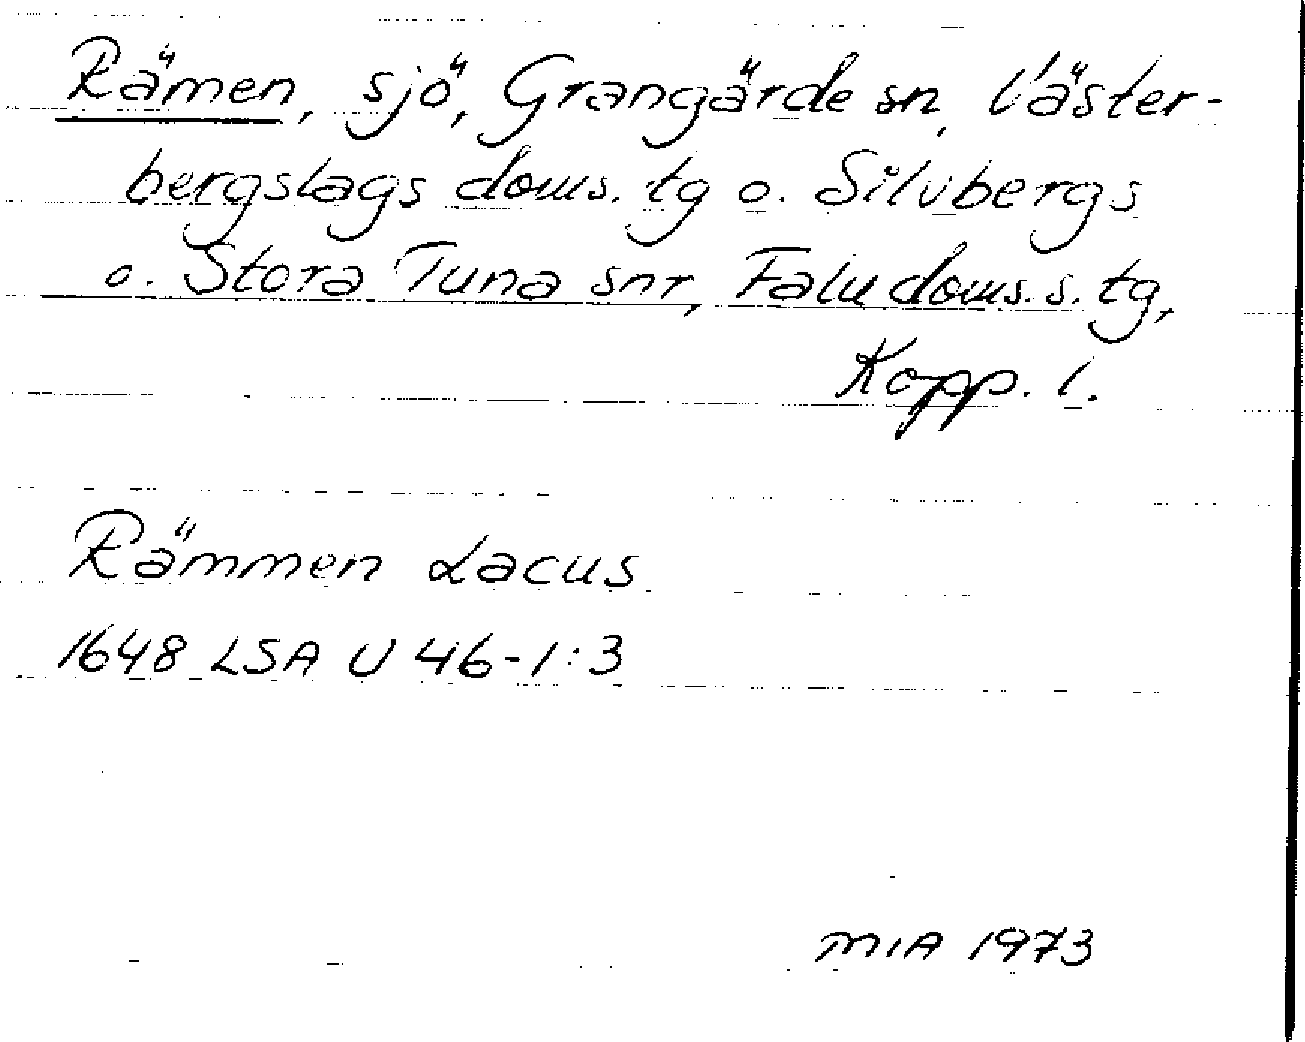 Rämen, sjö, Grangärde sn, Väster-
bergslags doms. tg o. Silvbergs
o. Stora Tuna snr, Falu doms.s. tg,
Kopp. l.
Rämmen Lacus
1648 LSA U 46-1:3
MIA 1973